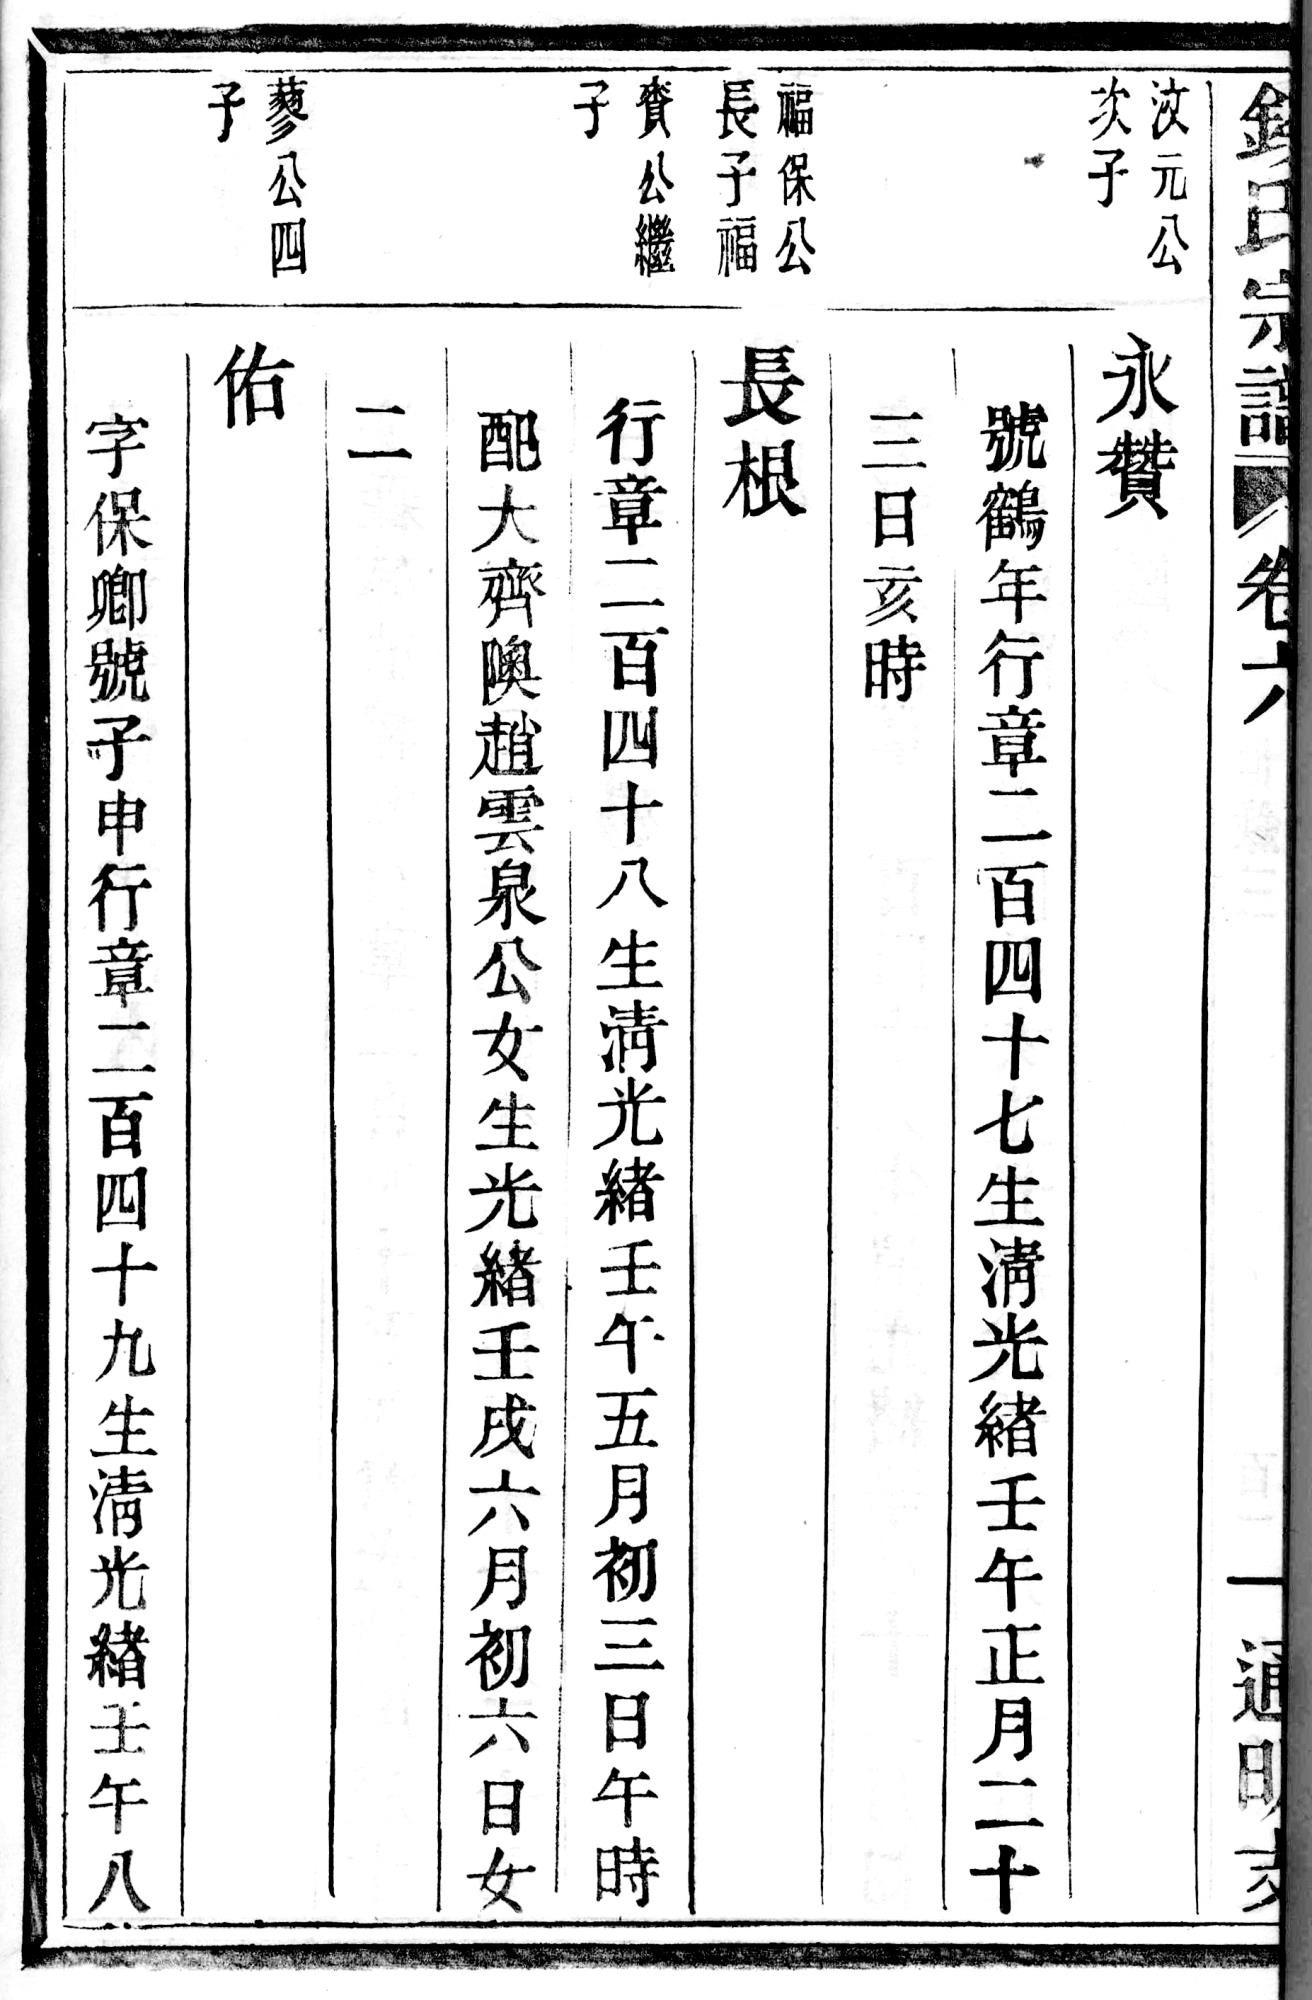 氏宗譜 卷六 一 通明支
汶元公
次子
永贊
號鶴年行章二百四十七生清光緒壬午正月二十
三日亥時
福保公
長子福
賚公繼
子
長根
行章二百四十八生清光緒壬午五月初三日午時
配大齊隩趙雲泉公女生光緒壬戌六月初六日女
二
蓼公四
子
佑
字保卿號子申行章二百四十九生清光緒壬午八